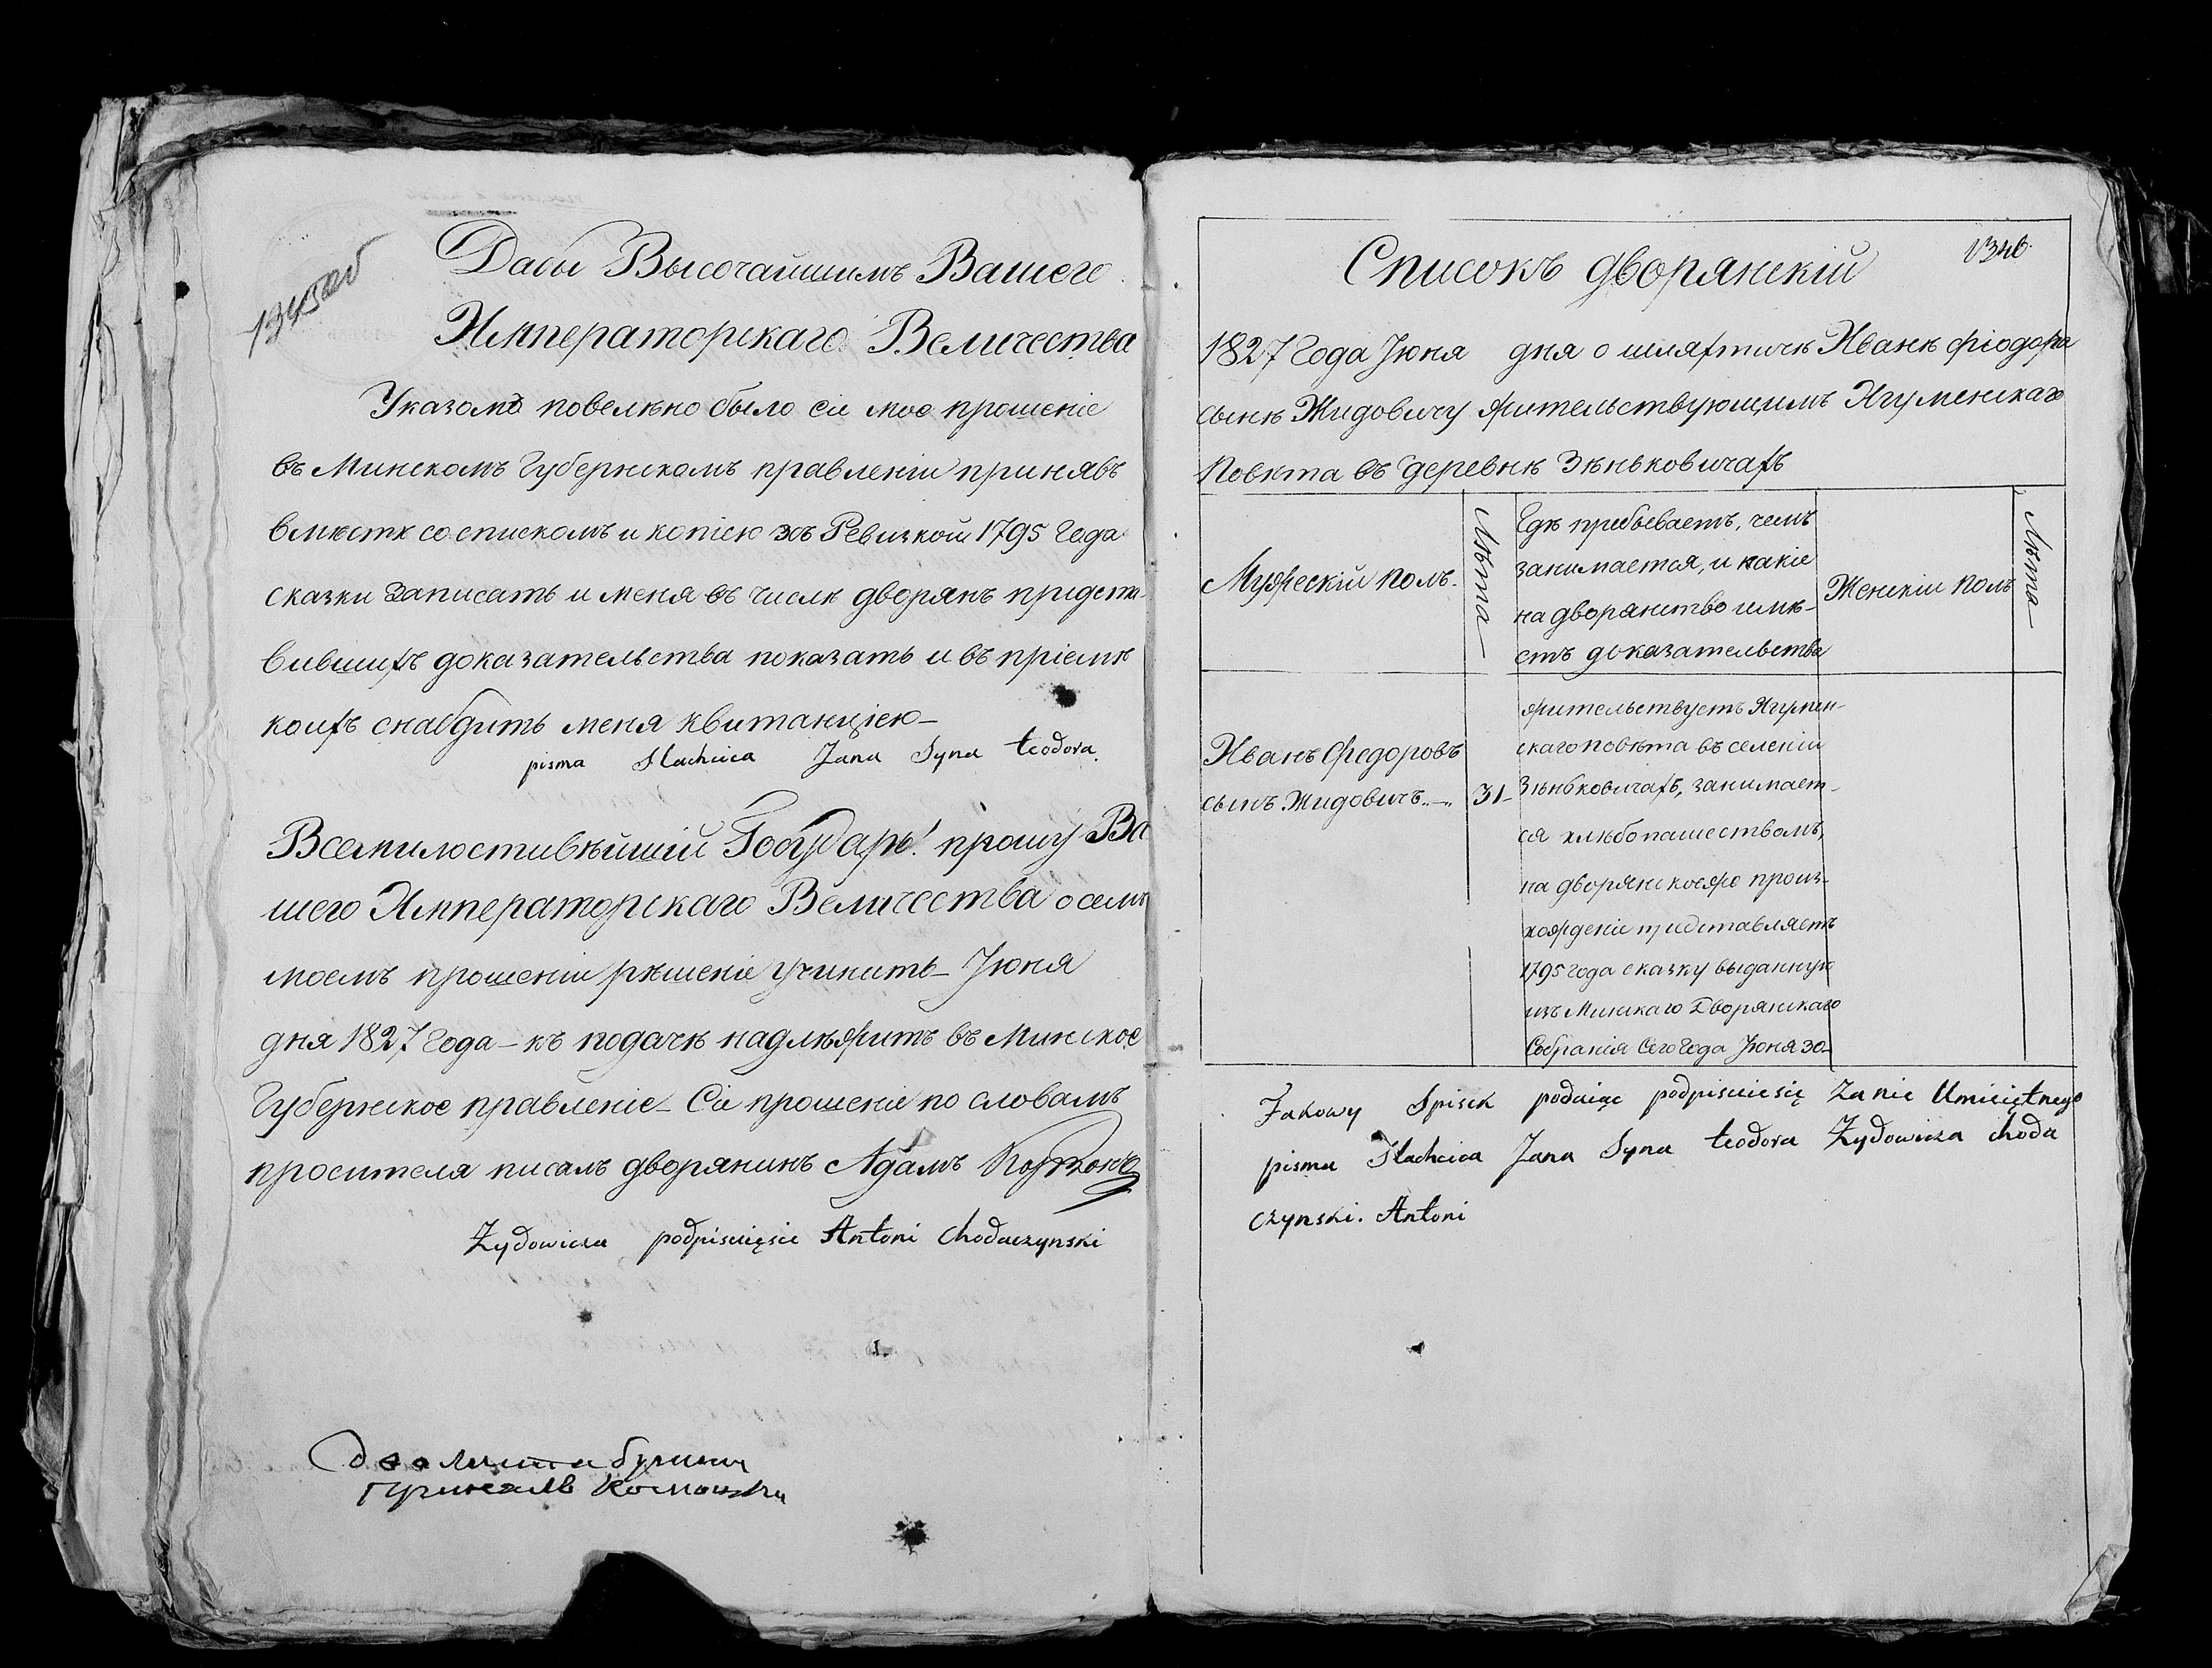 1345 об
Дабы Высочайшимъ Вашего
Императорскаго Величества
Указомъ повелѣно было сіе мое прошеніе
въ Минскомъ Губернскомъ правленіи принявъ
вмѣстѣ со спискомъ и копіею зъ Ревизкой 1795 Года
сказки записать и меня въ числѣ дворянъ предста-
вившихъ доказательства показать и въ пріемѣ
коихъ снабдить меня квитанціею—
pisma Slachcica Jana Syna teodora
Всемилостивѣйшій Государь! прошу Ва
шего Императорскаго Величества о семъ
моемъ прошеніи рѣшеніе учинить— Іюня
дня 1827 года— къ подачѣ надлѣжитъ въ Минское
Губернское правленіе— Сіе прошеніе по словамъ
просителя писалъ дворянинъ Адамъ
Zydowicza podpisuięsie Antoni Chodaczynski
1346.
Списокъ дворянскій
1827 Года Іюня дня о шляхтичѣ Иванѣ Фіодора
сынѣ Жидовичу жительствующимъ Игуменскаго
Повѣта въ деревнѣ Зѣньковичахъ
Мужескій полъ.
Лѣта—
Гдѣ пребываетъ, чемъ
занимается, и какіе
на дворянство имѣ-
етъ доказательства
Женскій полъ
Лѣта—
Иванъ Федоровъ
сынъ Жидовичъ.—.
31-
жительствуетъ Игумен-
скаго повѣта въ селеніи
Зѣньковичахъ, занимает-
ся хлѣбопашествомъ,
на дворянскоеже проис-
хожденіе представляетъ
1795 года сказку выданную
изъ Минскаго Дворянскаго
Собранія Сего Года Іюня 30—
Jakowy Spisek podaiąc podpisuiesię Za nie Umieiętnego
pisma Slachcica Jana Syna teodora Zydowicza choda
czynski. Antoni